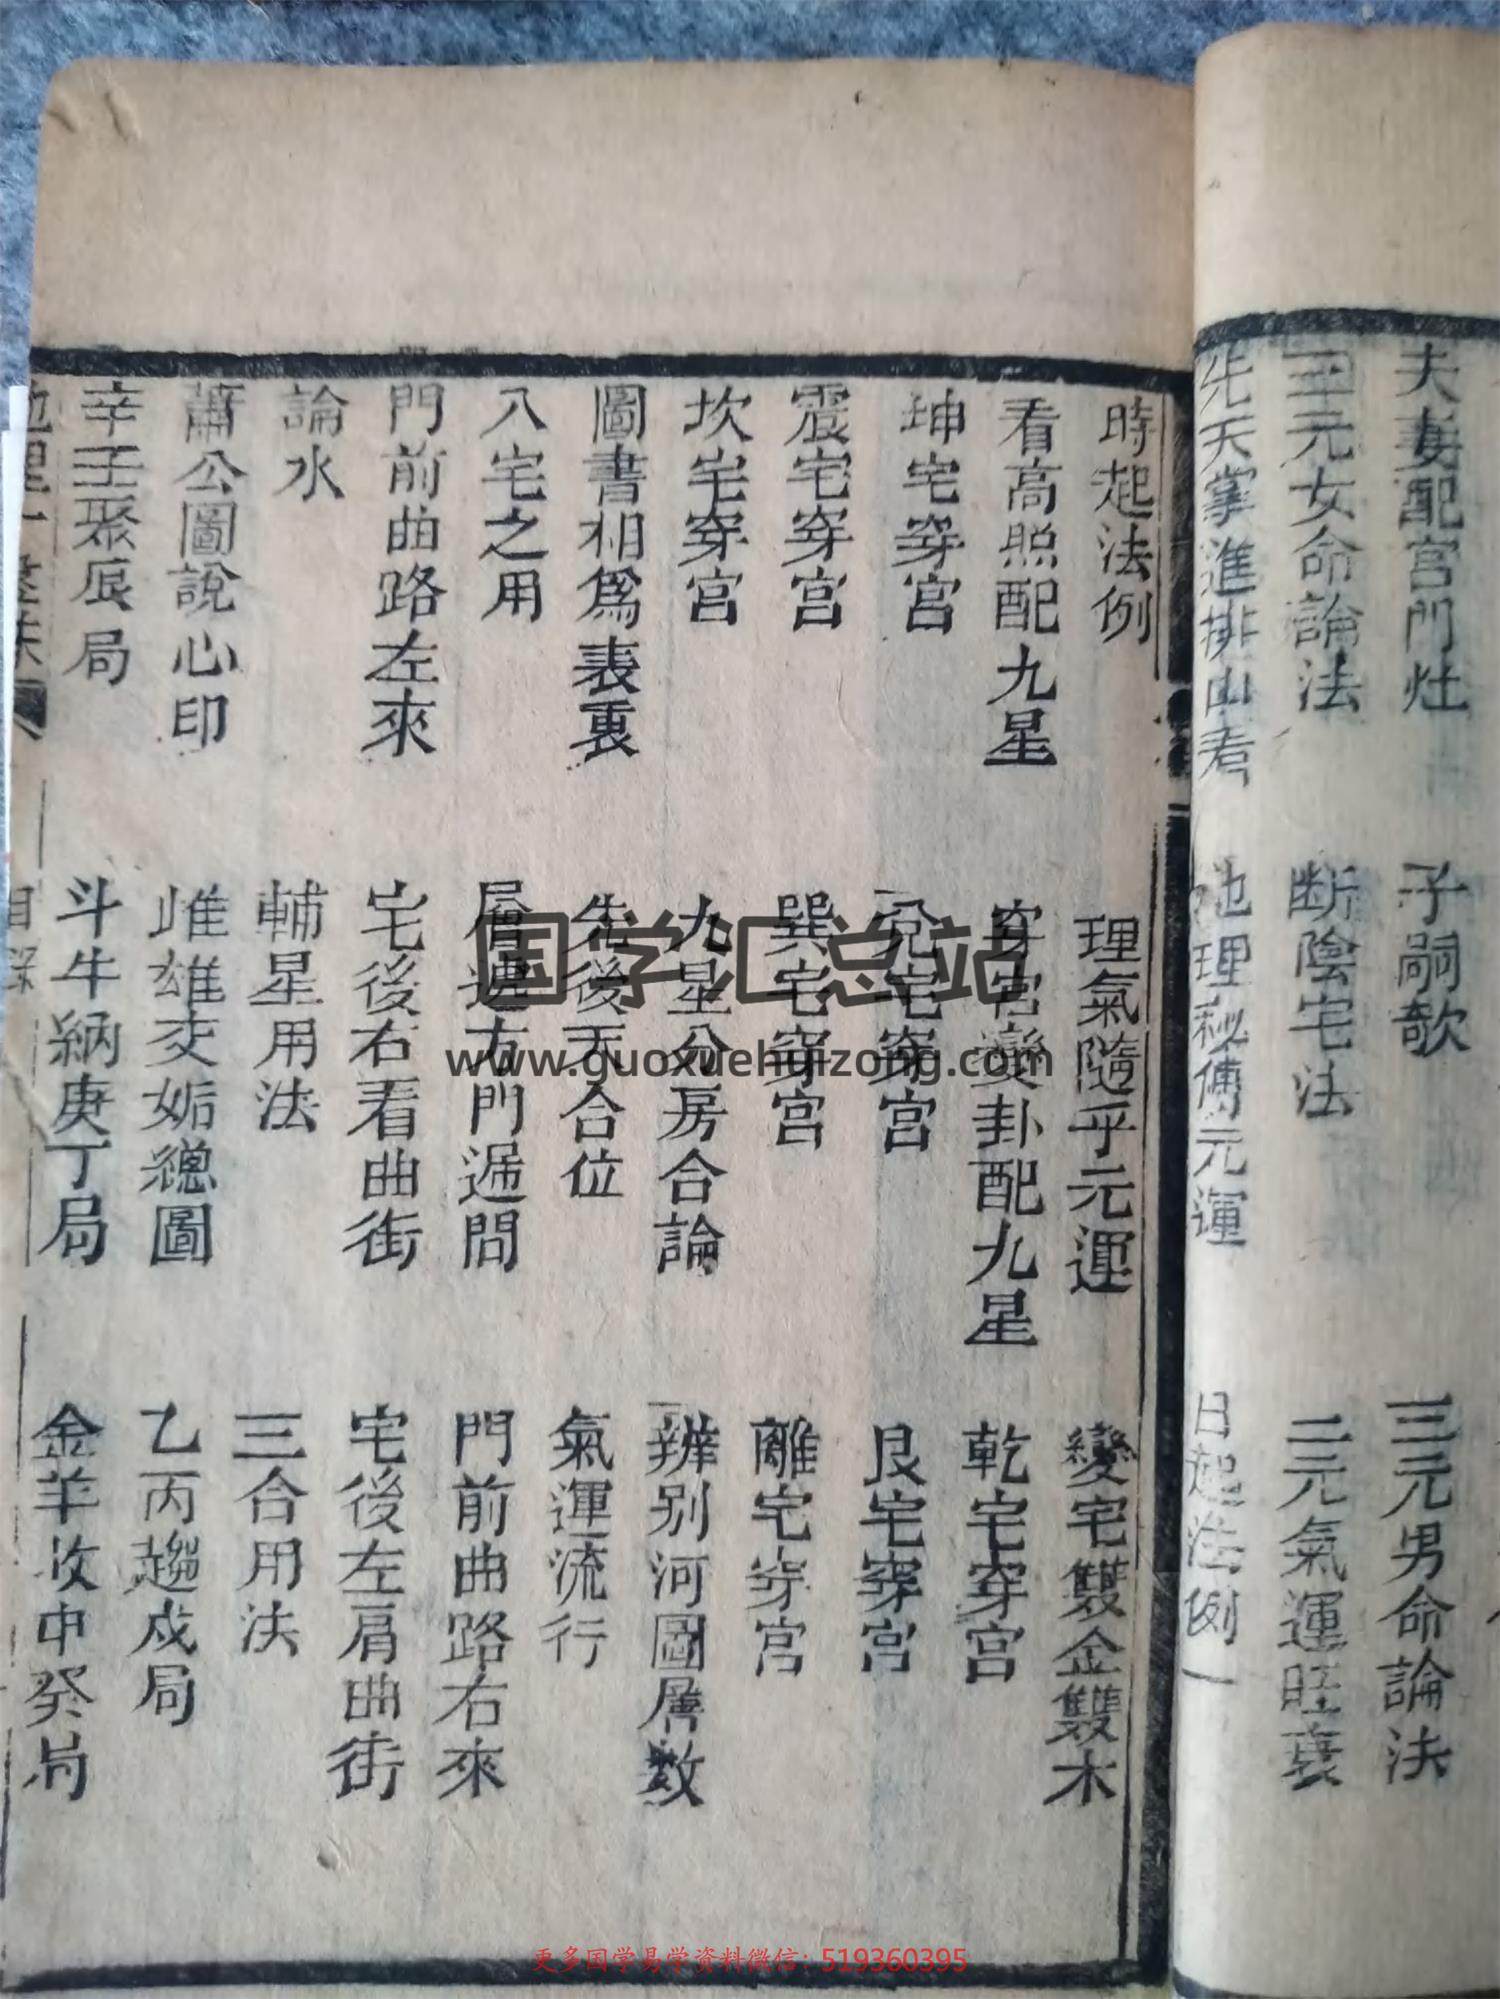 夫妻配宮門灶 子嗣歌 三元男命論法
三元女命論法 断陰宅法 三元氣運旺衰
先天掌進排山考 地理秘傳元運 日起法例
時起法例 理氣隨乎元運 變宅雙金雙木
看高照配九星 穿宮變卦配九星 乾宅穿宮
坤宅穿宮 兌宅穿宮 艮宅穿宮
震宅穿宮 巽宅穿宮 離宅穿宮
坎宅穿宮 九星分房合論 辨别河圖層数
圖書相爲表裏 先後天合位 氣運流行
八宅之用 層遞方門遞問 門前曲路右來
門前曲路左來 宅後右看曲街 宅後左肩曲街
論水 輔星用法 三合用法
蕭公圖說心印 雌雄交姤總圖 乙丙趨戍局
辛壬聚辰局 斗牛納庚丁局 金羊收申癸局
地理一
目錄
国学汇总站
www.guoxuehuizong.com
更多国学易学资料微信：519360395